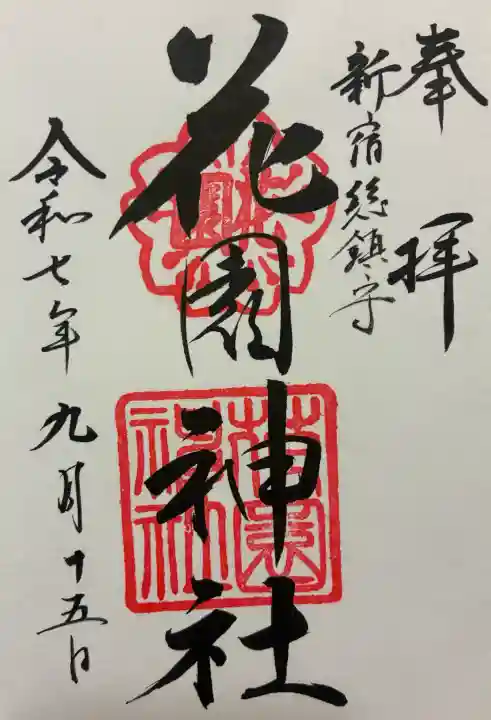 奉拝
新宿総鎮守
花園神社
花園神社
令和七年九月十五日